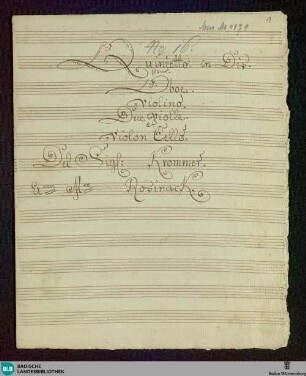 No 16.
Quintetto in Dis.
Oboe.
Violino.
Due Viole.
et
Violon Cello.
Del Sigl: Krommer.
Rosinack.
BLB
BADISCHE
LANDESBIBLIOTHEK
Baden-Württemberg